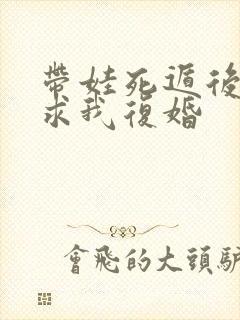 帶娃死遁後
求我復婚
會飛的大頭驢